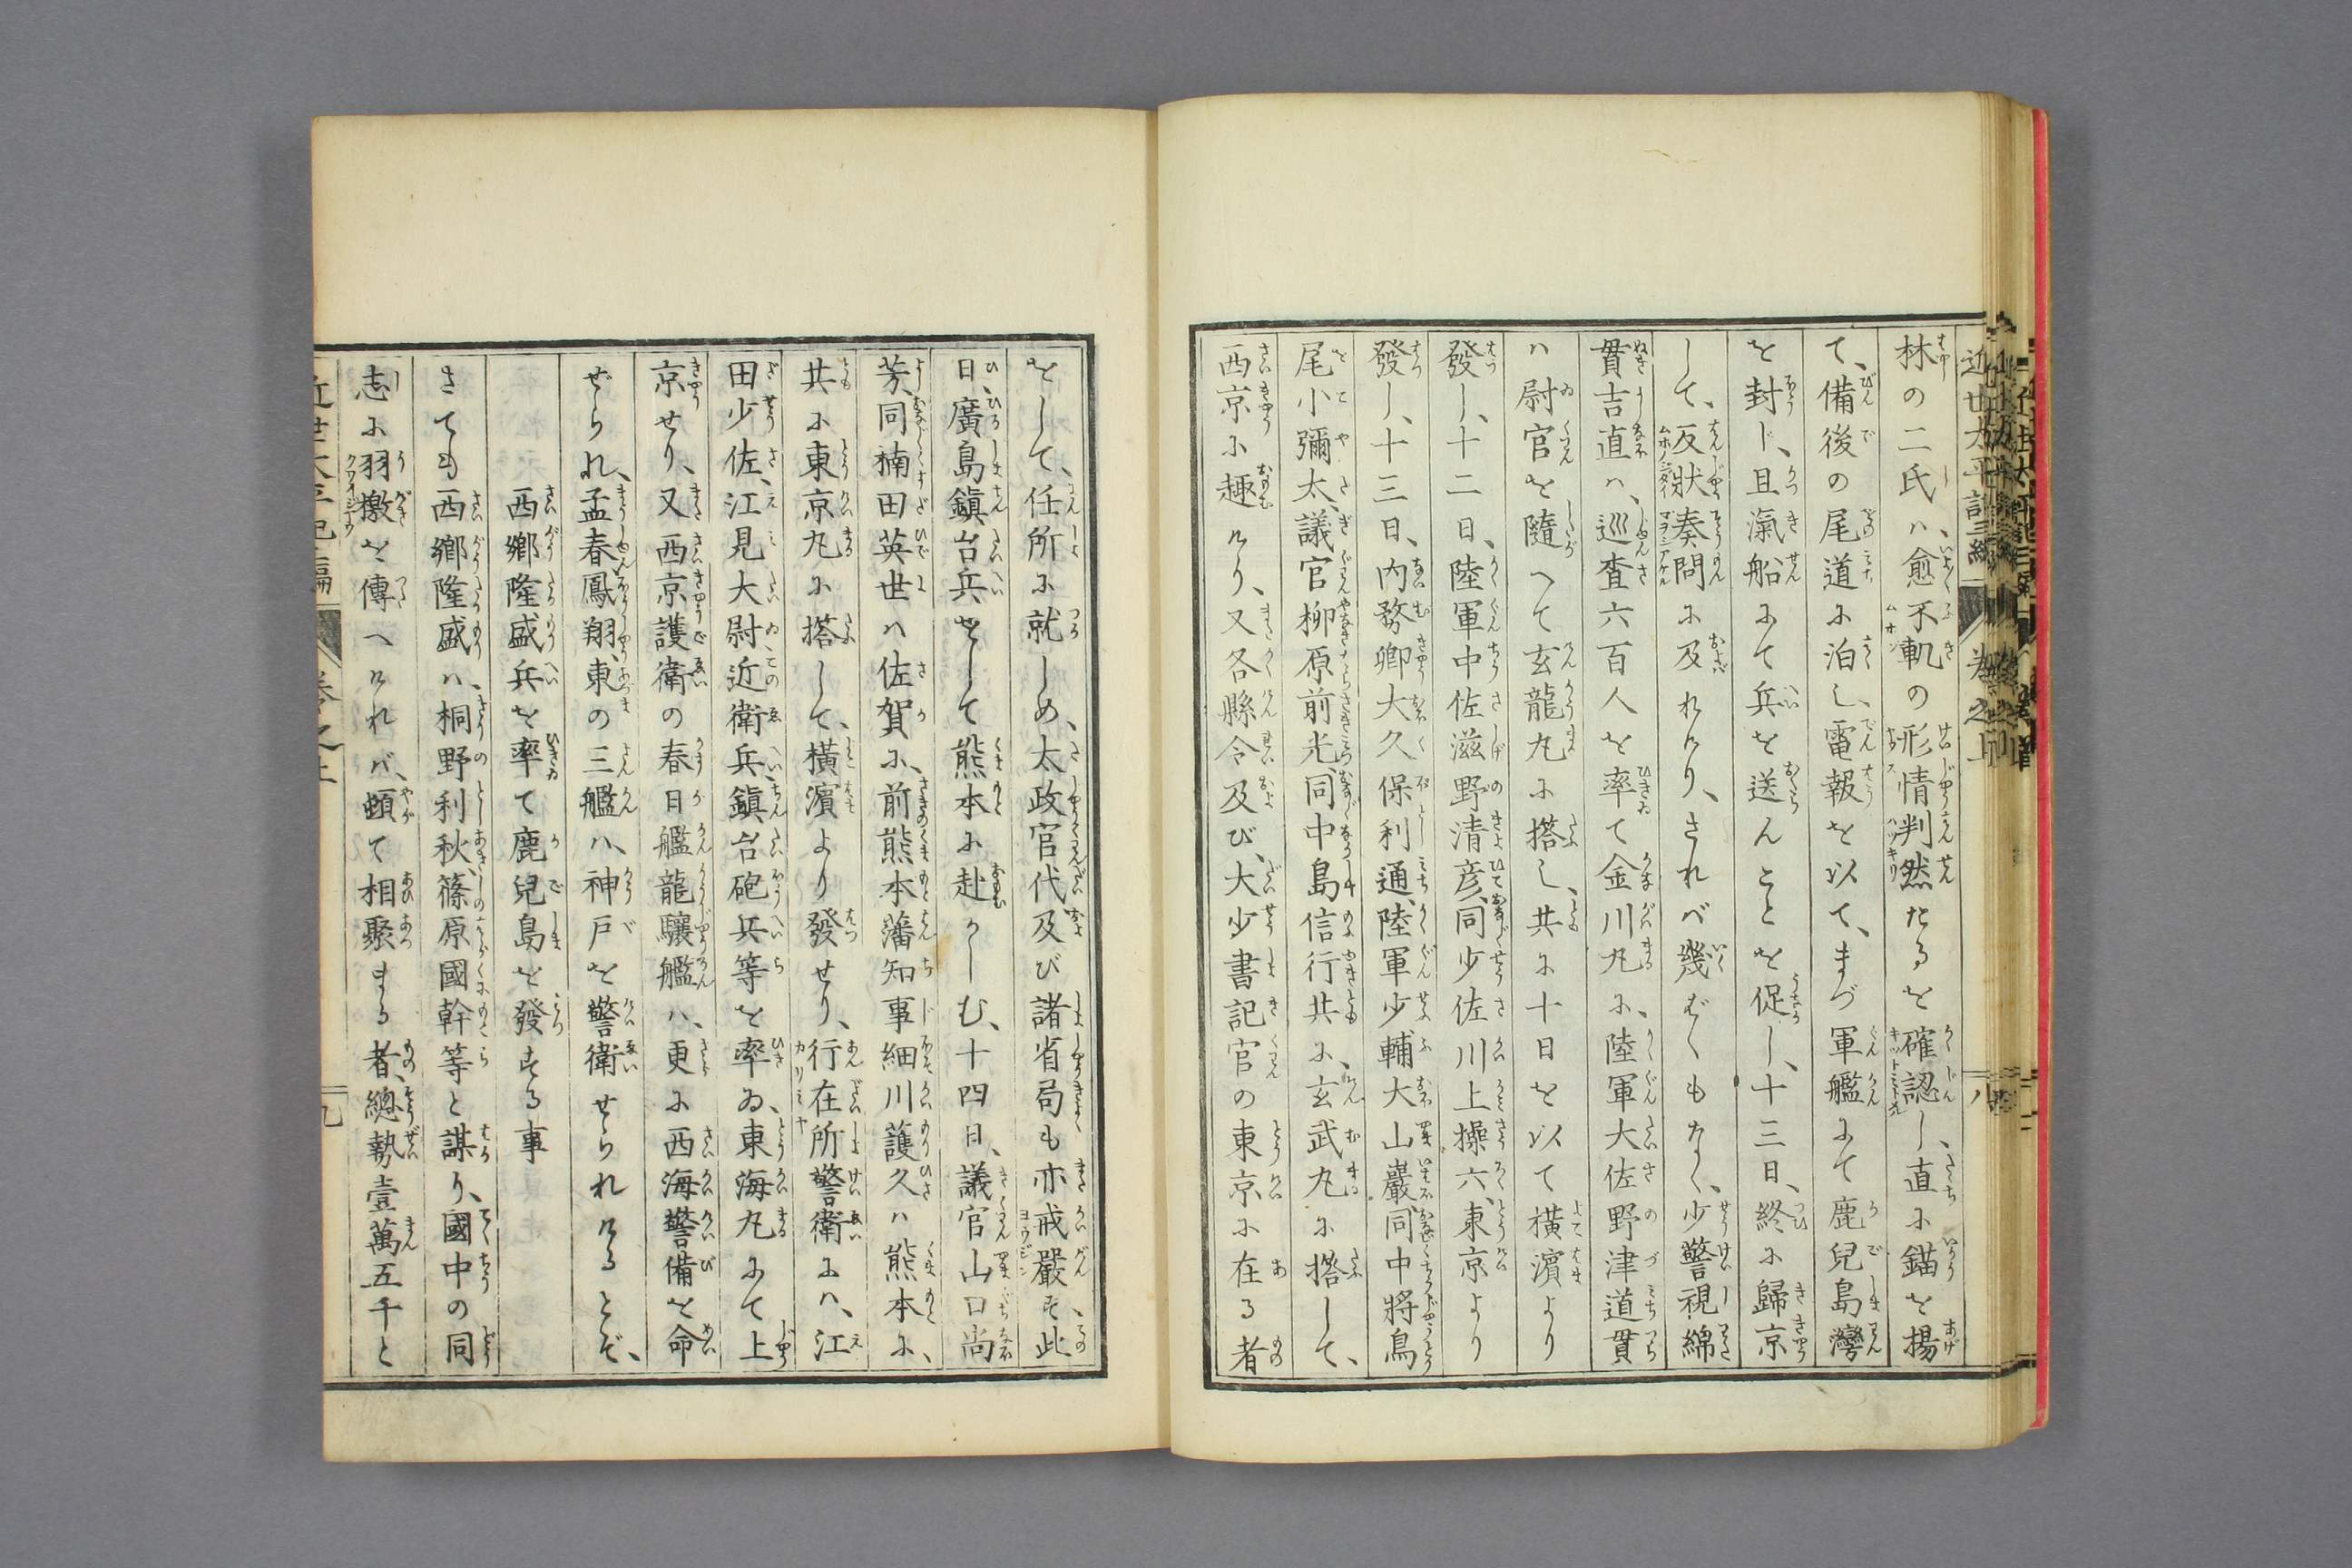 近世太平記三編 卷之上 八
林の二氏ハ、愈不軌の形情判然たるを確認し、直ふ錨を揚
て、備後の尾道ふ泊し、電報を以て、まづ軍艦ふて鹿兒島灣
を封ド、且滊船ふて兵を送んことを促し、十三日、終ふ歸京
して、反狀奏問ふ及れけり、されべ幾ばくもなく、少警視綿
貫吉直ハ、巡査六百人を率て金川丸ふ、陸軍大佐野津道貫
ハ尉官を隨へて玄龍丸ふ搭し、共ふ十日を以て橫濱より
發し、十二日、陸軍中佐滋野清彦、同少佐川上操六、東京より
發し、十三日、内務卿大久保利通、陸軍少輔大山巖、同中將鳥
尾小彌太、議官柳原前光、同中島信行共ふ、玄武丸ふ搭して、
西京ふ趣けり、又各縣令及び、大少書記官の東京ふ在る者
をして、任所ふ就しめ、太政官代及び諸省局も亦戒嚴す、此
日、廣島鎭台兵をして熊本ふ赴かしむ、十四日、議官山口尚
芳、同楠田英世ハ佐賀ふ、前熊本藩知事細川護久ハ熊本ふ、
共ふ東京丸ふ搭して、橫濱より發せり、行在所警衛ふハ、江
田少佐、江見大尉近衛兵、鎭台砲兵等を率ゐ、東海丸ふて上
京せり、又西京護衛の春日艦龍驤艦ハ、更ふ西海警備を命
ぜられ、孟春鳳翔、東の三艦ハ、神戸を警衛せられけるとぞ、
西鄕隆盛兵を率て鹿兒島を發する事
さても西鄕隆盛ハ、桐野利秋、篠原國幹等と謀り、國中の同
志ふ羽檄を傳へけれバ、頓て相聚まる者、總勢壹萬五千と
近世太平記三編 卷之上 九